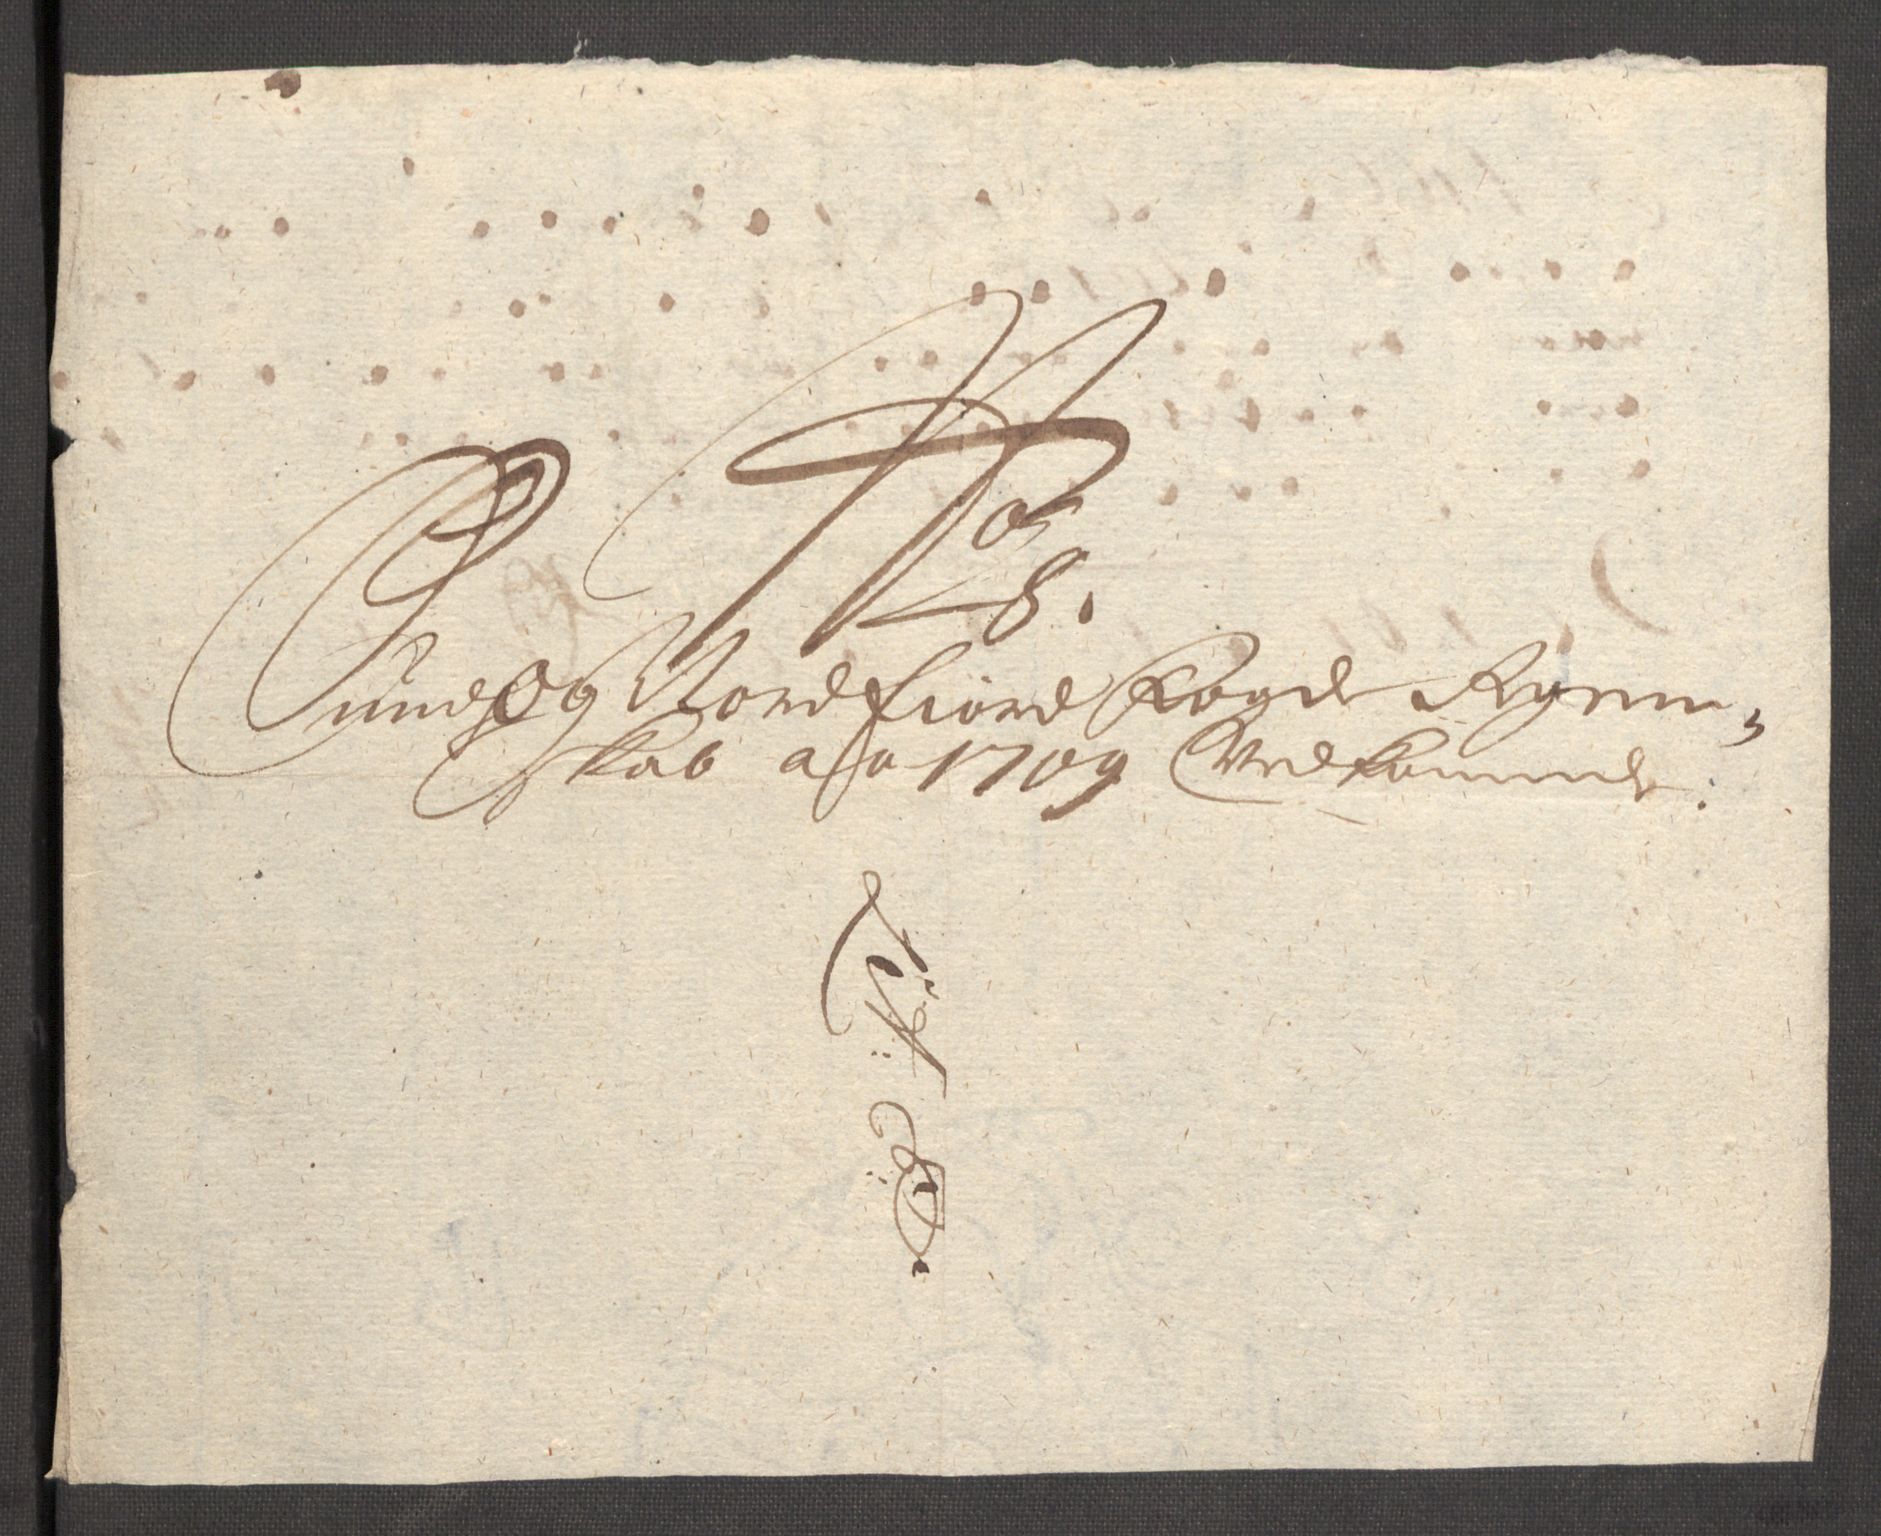 No 8.
Sund og Nordfiord Fogde Regen-
skab a/o 1709 Vedkommende: